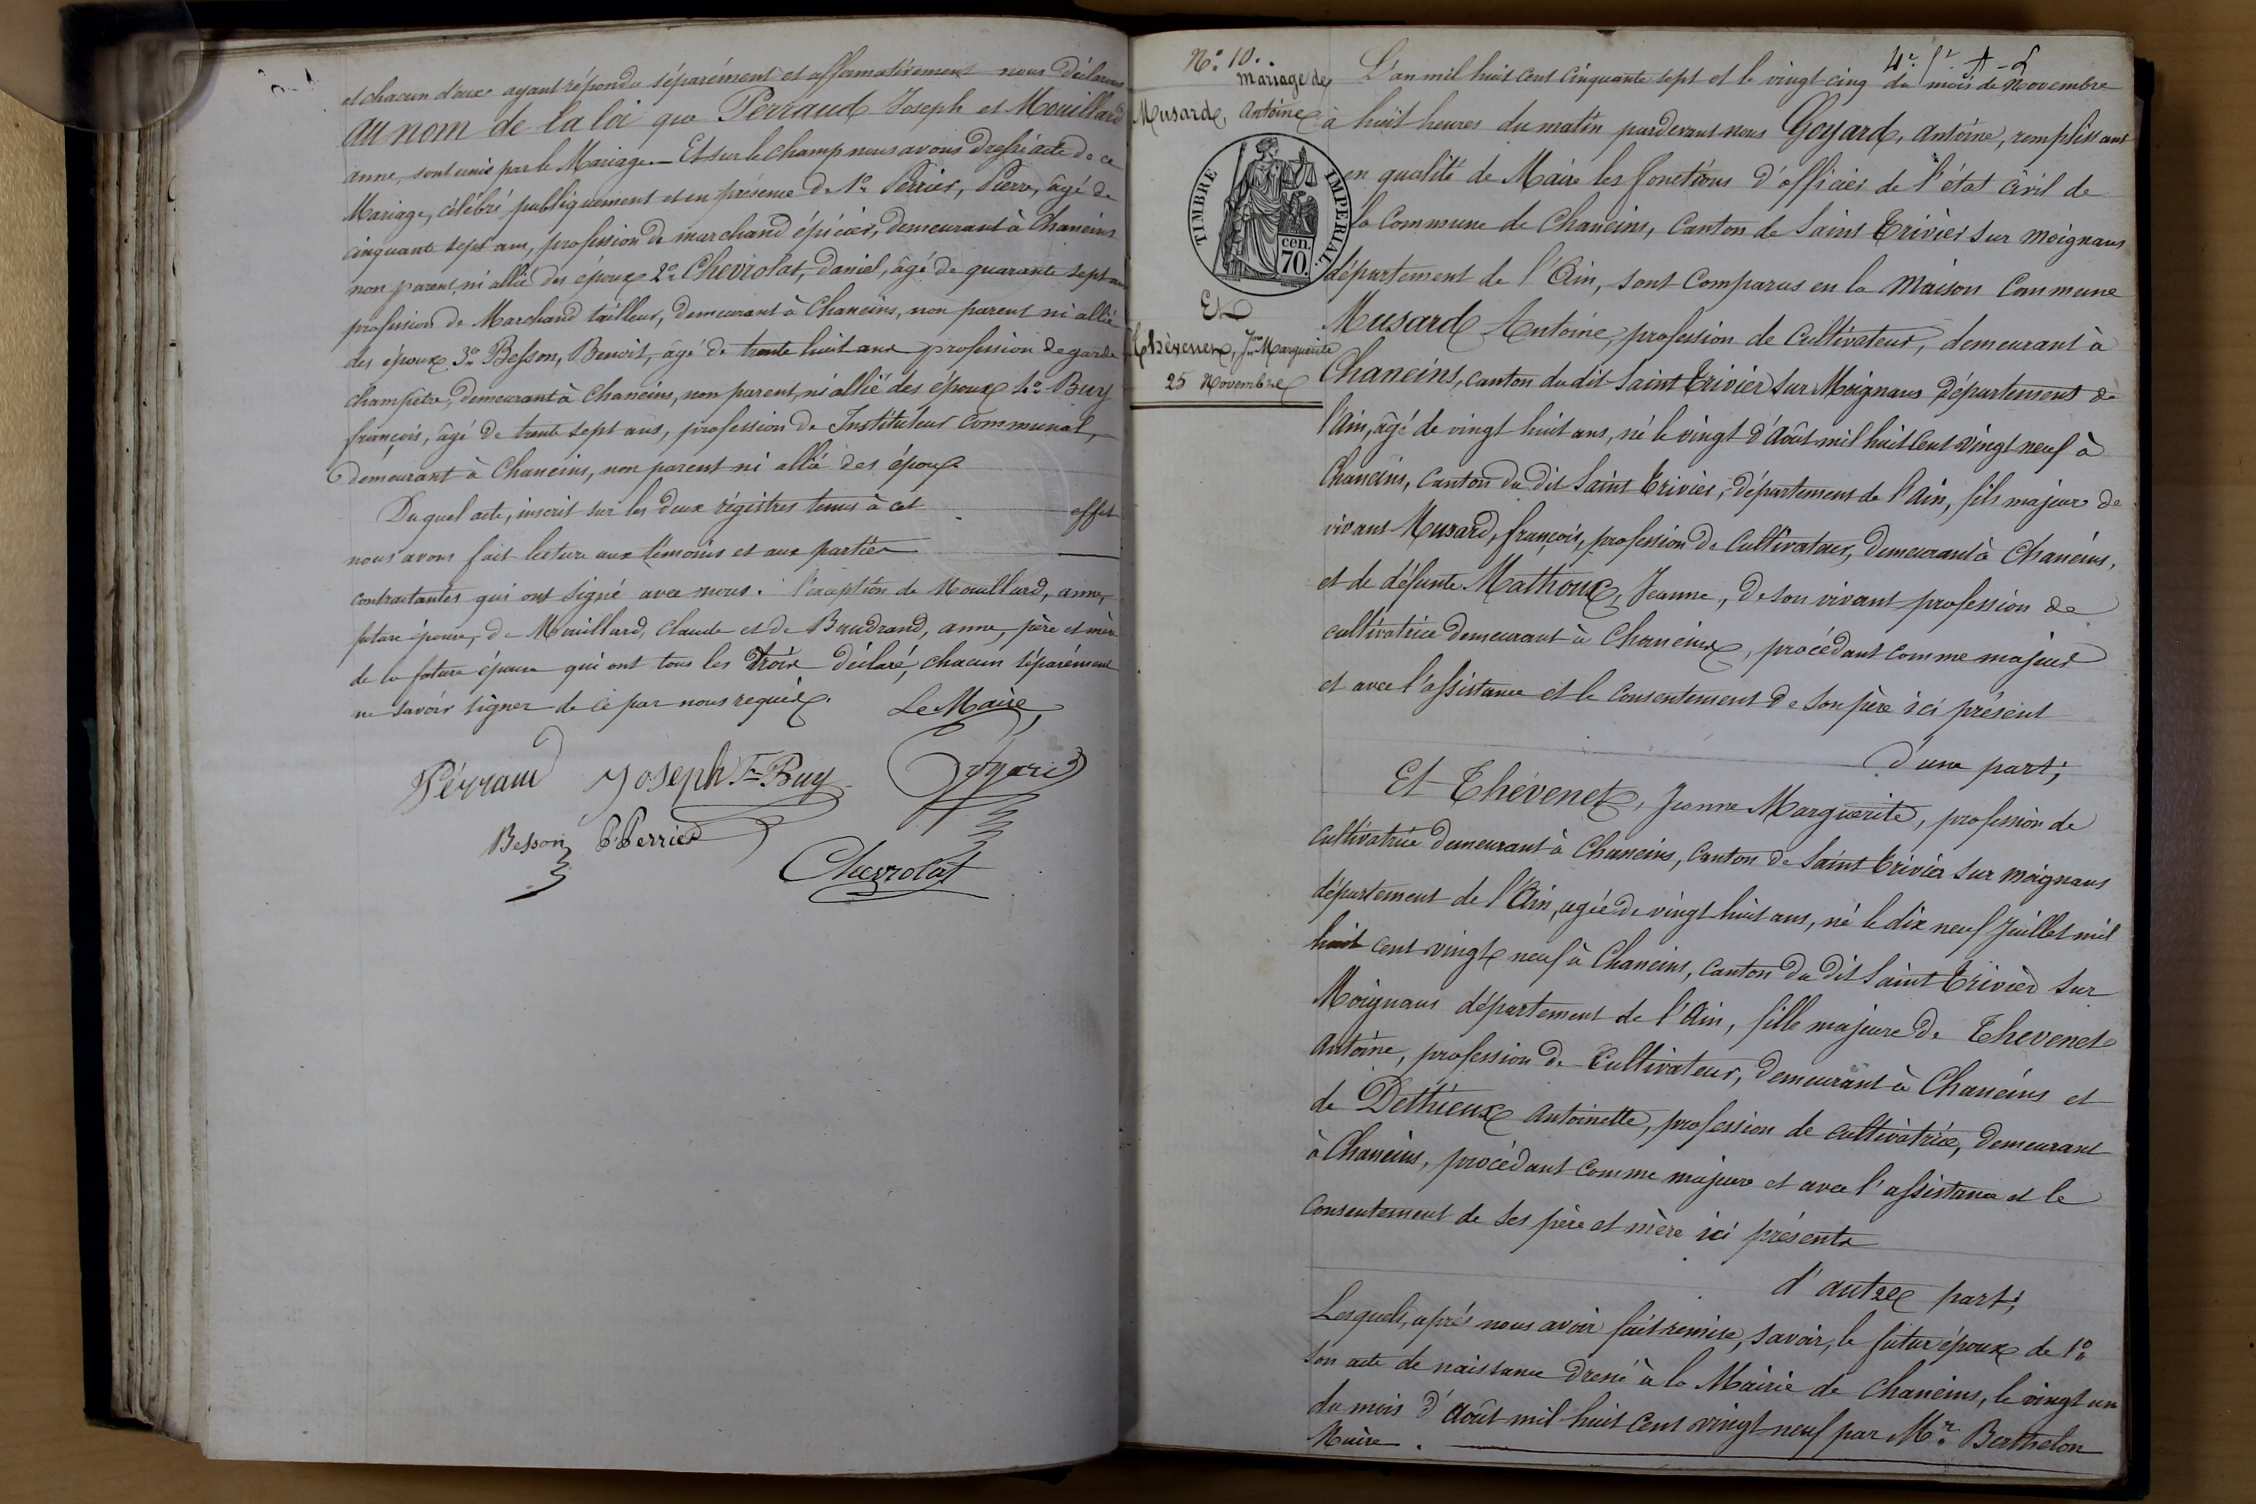 et chacun d'eux ayant répondu séparément et affirmativement nous déclarons
au nom de la loi que Perraud Joseph et Mouillard
anne, sont unis par le Mariage. — Et sur le champ nous avons dressé acte de ce
Mariage, célébré publiquement et en présence de 1º Perrier, Pierre, âgé de
cinquante sept ans, profession de marchand épicier, demeurant à Chaneins
non parent ni allié des époux 2º Chevrolat, Daniel, âgé de quarante sept ans
profession de Marchand tailleur, demeurant à Chaneins, non parent ni allié
des époux 3º Besson, Benoit, âgé de trente huit ans profession de garde
champêtre, demeurant à Chaneins, non parent, ni allié des époux 4º Buy
françois, âgé de trente sept ans, profession de Instituteur Communal,
demeurant à Chaneins, non parent ni allié des époux
Du quel acte, inscrit sur les deux régistres tenus à cet effet
nous avons fait lecture aux témoins et aux parties
contractantes qui ont signé avec nous. l'exception de Mouillard, anne,
future épouse, de Mouillard, Claude et de Baudrand, anne, père et mère
de la future épouse qui ont tous les trois déclaré, chacun séparément
ne savoir signer de ce par nous requis.
Le Maire,
Perraud Joseph Fs Buy Goyard
Besson P. Perrier
Chevrolat
Nº 10.
mariage de
Musard, Antoine
TIMBRE IMPERIAL
cen.
70.
Et
Thévenet, Jne Marguerite
25 Novembre
L'an mil huit cent cinquante sept et le vingt cinq du mois de Novembre
à huit heures du matin pardevant nous Goyard, Antoine, remplissant
en qualité de Maire les fonctions d'officier de l'état civil de
la Commune de Chaneins, Canton de Saint Trivier sur Moignans
département de l'Ain, sont Comparus en la Maison Commune
Musard Antoine, profession de Cultivateur, demeurant à
Chaneins, canton du dit Saint Trivier sur Moignans Département de
l'Ain, âgé de vingt huit ans, né le vingt d'Août mil huit Cent vingt neuf à
Chaneins, Canton du dit Saint Trivier, département de l'Ain, fils majeur de
vivant Musard, françois, profession de Cultivateur, demeurant à Chaneins,
et de défunte Mathoux, Jeanne, de son vivant profession de
cultivatrice demeurant à Chaneins, procédant comme majeur
et avec l'assistance et le consentement de son père ici présent
d'une part;
Et Thévenet, Jeanne Marguerite, profession de
Cultivatrice demeurant à Chaneins, Canton de Saint Trivier sur Moignans
département de l'Ain, agée de vingt huit ans, né le dix neuf Juillet mil
huit cent vingt neuf à Chaneins, Canton du dit Saint Trivier sur
Moignans département de l'Ain, fille majeure de Thevenet
Antoine, profession de Cultivateur, demeurant à Chaneins et
de Dethieux Antoinette, profession de cultivatrice, demeurant
à Chaneins, procédant comme majeure et avec l'assistance et le
consentement de ses père et mère ici présents
d'autre part;
Lesquels, après nous avoir fait remise, savoir, le futur époux de 1º
son acte de naissance dressé à la Mairie de Chaneins, le vingt un
du mois d'Août mil huit Cent vingt neuf par Mr. Berthelon
Maire.